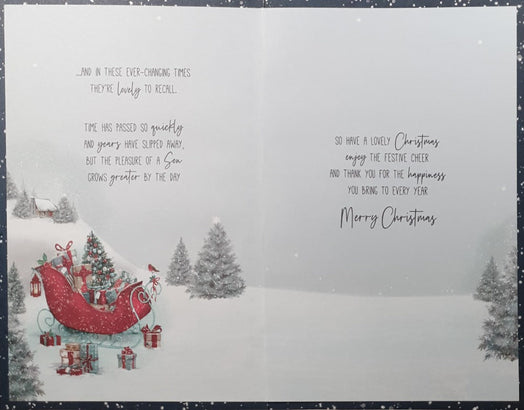 ...AND IN THESE EVER-CHANGING TIMES
THEY'RE lovely TO RECALL.
TIME HAS PASSED SO quickly
AND years HAVE SLIPPED AWAY,
BUT THE PLEASURE OF A Son
GROWS greater BY THE DAY
SO HAVE A LOVELY Christmas
enjoy THE FESTIVE CHEER
AND THANK YOU FOR THE happiness
YOU BRING TO EVERY YEAR
Merry Christmas